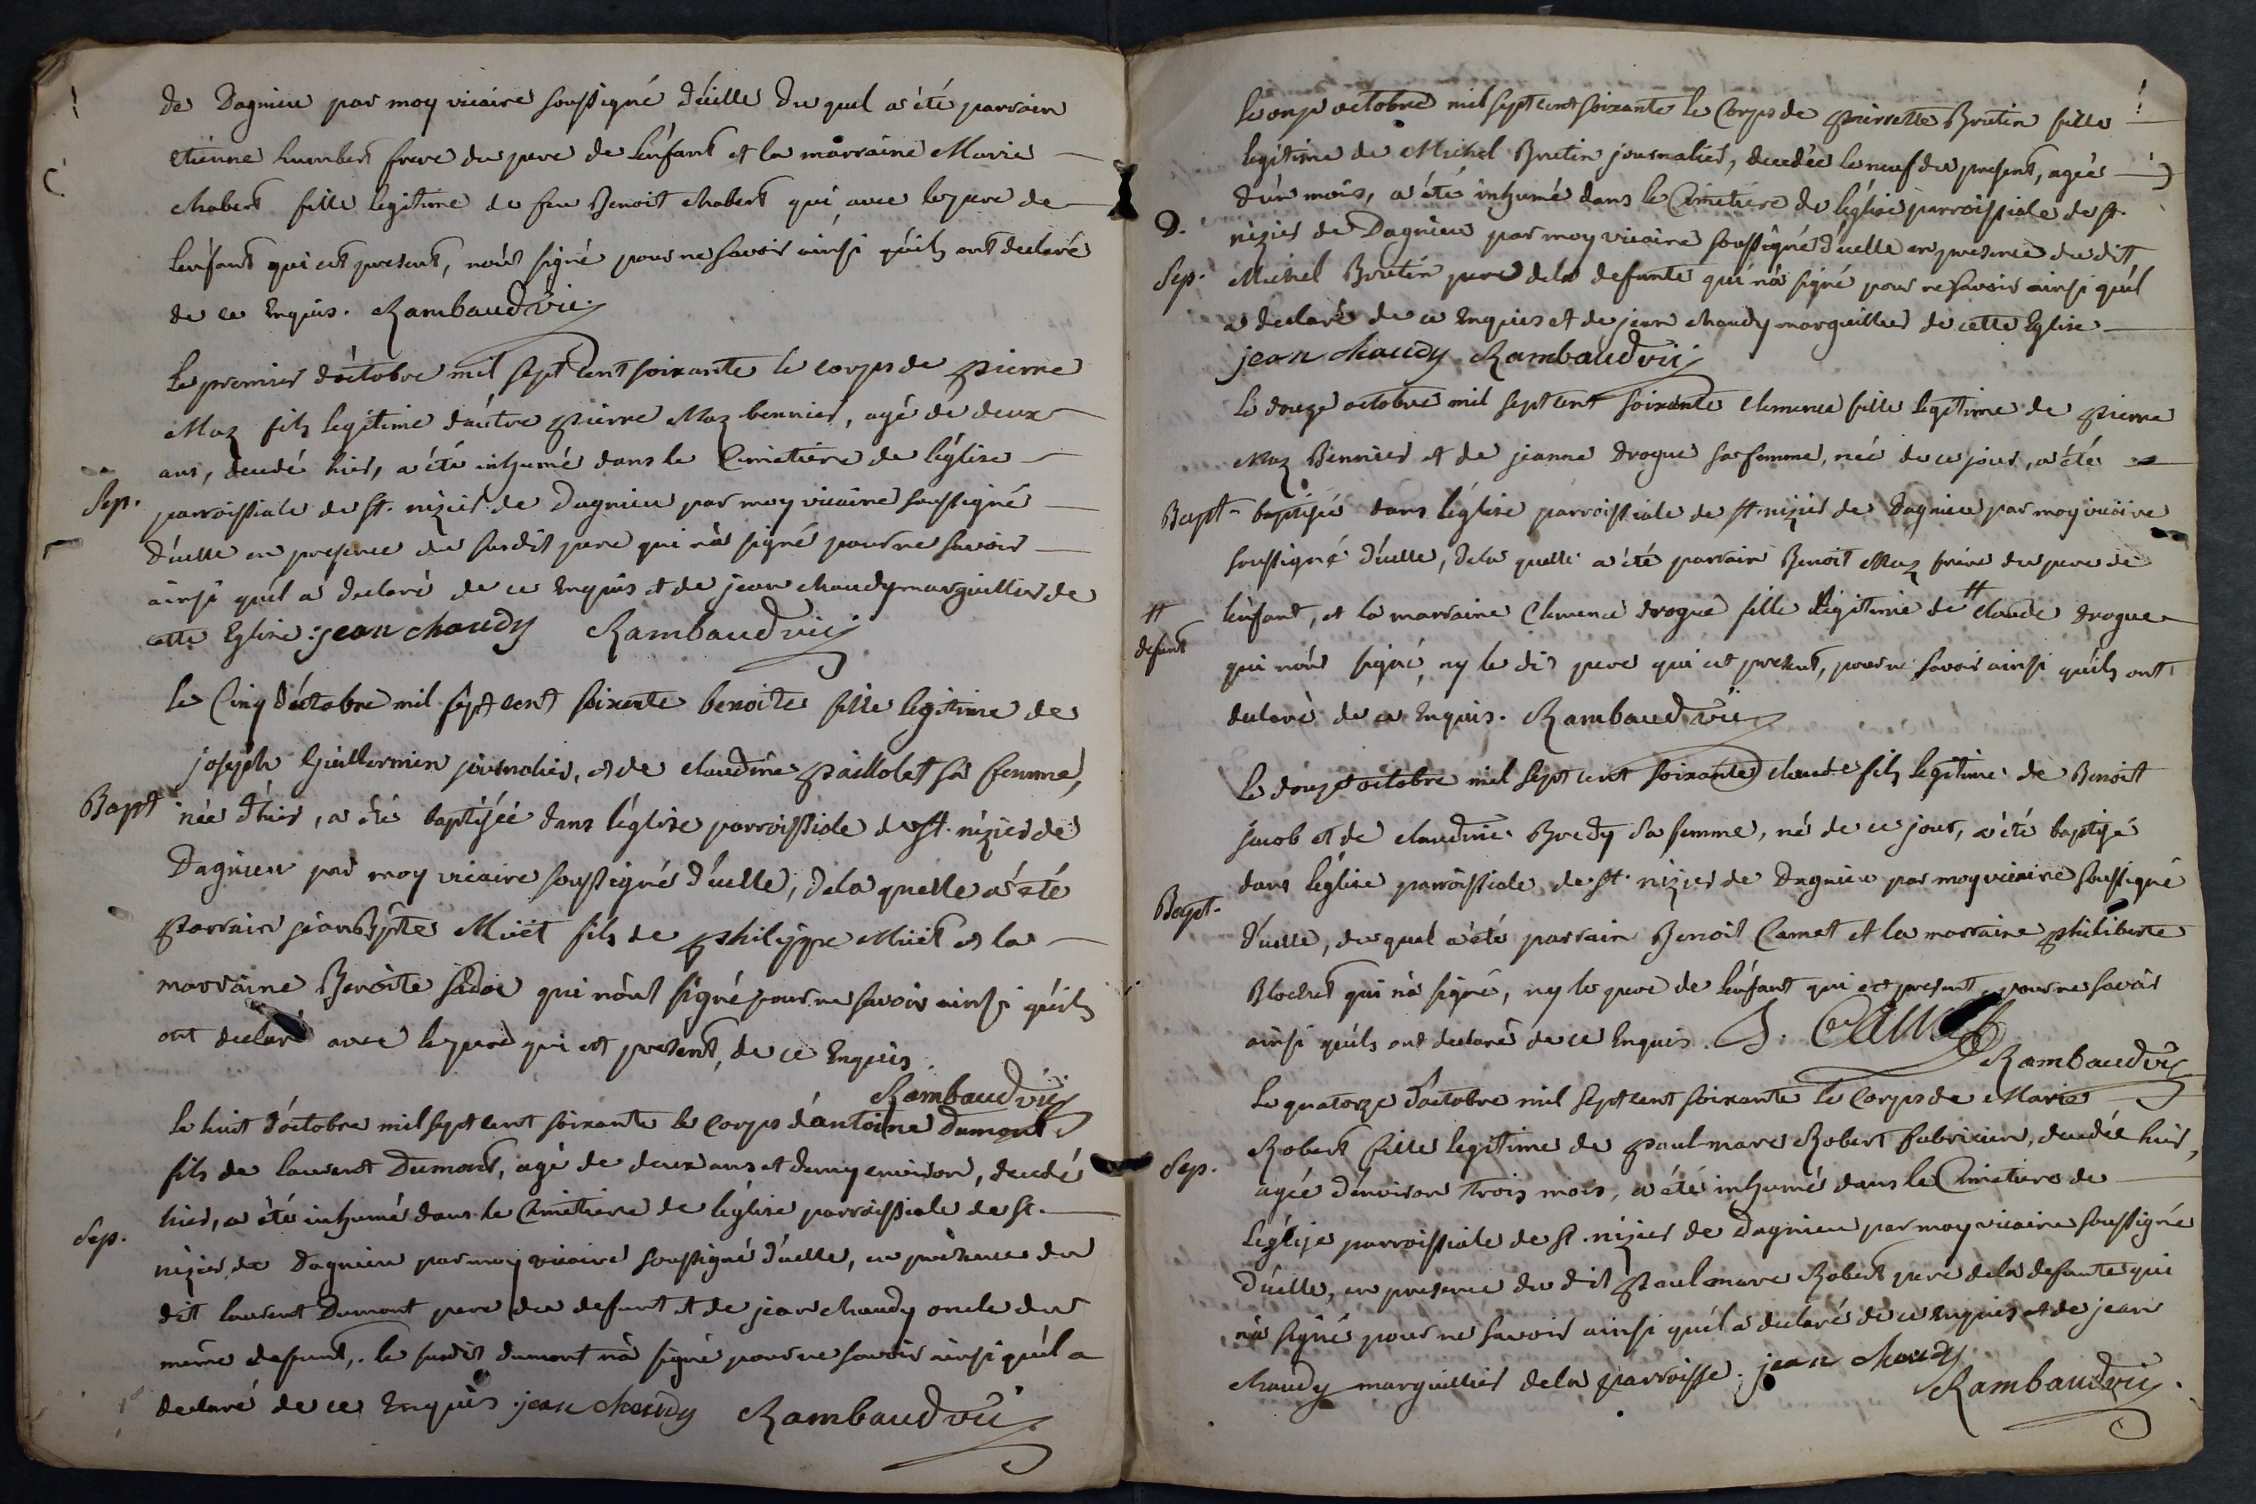 de Dagnieu par moy vicaire soussigné d'icelle du quel a été parrain
etienne humbert frere du pere de l'enfant et la marraine Marie
chabert fille legitime de feu Benoit chabert qui, avec le pere de
l'enfant qui est present, n'ont signé pour ne savoir ainsi qu'ils ont declaré
de ce Enquis. Rambaud vic
Le premier d'octobre mil sept cent soixante le corps de pierre
Maz fils legitime d'autre pierre Maz bennier, agé de deux
ans, decedé hier, a été inhumé dans le Cimetiere de l'église
Sep. parroissiale de st. nizier de Dagnieu par moy vicaire soussigné
d'icelle en presence du susdit pere qui n'a signé pour ne savoir
ainsi qu'il a declaré de ce Enquis et de jean chaudy marguillier de
cette Eglise. jean chaudy Rambaud vic
Le Cinq d'octobre mil sept cent soixante benoite fille legitime de
joseph Guillermin journalier, et de claudine paillolet sa femme,
Bapt née d'hier, a été baptisée dans l'église parroissiale de st. nizier de
Dagnieu par moy vicaire soussigné d'icelle, de la quelle a été
parrain jean Bpte Müet fils de philippe Müet et la
marraine Benoite qui n'ont signé pour ne savoir ainsi qu'ils
ont declaré avec le pere qui est present, de ce Enquis.
Rambaud vic
Le huit d'octobre mil sept cent soixante le corps d'antoine Dumont
fils de laurent Dumont, agé de deux ans et demy environ, decedé
hier, a été inhumé dans le Cimetiere de l'église parroissiale de st.
Sep. nizier de Dagnieu par moy vicaire soussigné d'icelle, en presence du
dit laurent Dumont pere du defunt et de jean chaudy oncle du
même defunt, le susdit dumont n'a signé pour ne savoir ainsi qu'il a
declaré de ce Enquis. jean chaudy Rambaud vic
Le onze octobre mil sept cent soixante le Corps de pierrette Brutin fille
legitime de Michel Brutin journalier, decedée le neuf du present, agée
d'un mois, a été inhumé dans le Cimetiere de l'église parroissiale de st.
D. nizier de Dagnieu par moy vicaire soussigné d'icelle en presence du dit
Sep. Michel Brutin pere de la defunte qui n'a signé pour ne savoir ainsi qu'il
a declaré de ce Enquis et de jean chaudy marguillier de cette Eglise
jean chaudy Rambaud vic
Le douze octobre mil sept cent soixante clemence fille legitime de pierre
Maz Bennier et de jeanne drogue sa femme, née de ce jour, a été
Bapt. baptisée dans l'église parroissiale de st. nizier de Dagnieu par moy vicaire
soussigné d'icelle, de la quelle a été parrain Benoit Maz frere du pere de
# l'enfant, et la marraine Clemence drogue fille legitime de # claude drogue
defunt qui n'ont signé, ny le dit pere qui est present, pour ne savoir ainsi qu'ils ont
declaré de ce Enquis. Rambaud vic
Le douze octobre mil sept cent soixante claude fils legitime de Benoit
jacob et de claudine Bredy sa femme, né de ce jour, a été baptisé
dans l'église parroissiale de st. nizier de Dagnieu par moy vicaire soussigné
Bapt. d'icelle, du quel a été parrain Benoit Camet et la marraine philiberte
Blochet qui n'a signé, ny le pere de l'enfant qui est present, pour ne savoir
ainsi qu'ils ont declaré de ce Enquis. B. Camet
Rambaud vic
Le quatorze d'octobre mil sept cent soixante le Corps de Marie
Robert fille legitime de paul-marc Robert fabricien, decedée hier,
Sep. agée d'environ trois mois, a été inhumé dans le Cimetiere de
l'église parroissiale de st. nizier de Dagnieu par moy vicaire soussigné
d'icelle, en presence du dit paul marc Robert pere de la defunte qui
n'a signé pour ne savoir ainsi qu'il a declaré de ce Enquis et de jean
chaudy marguillier de la parroisse. jean chaudy
Rambaud vic